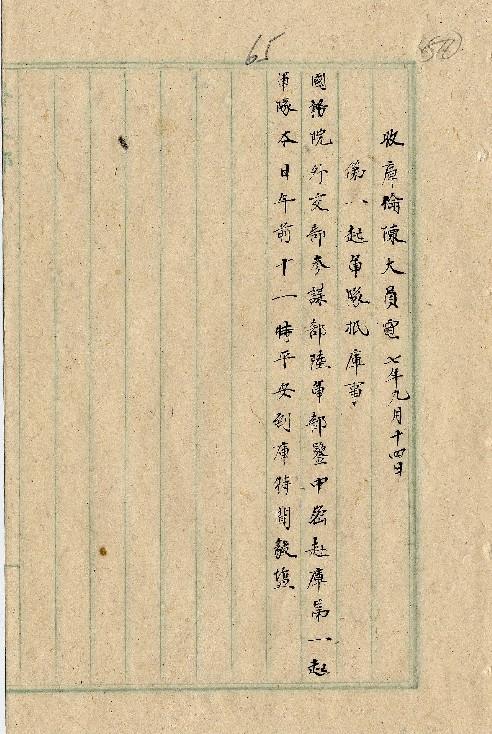 65
收庫倫陳大員電 七年九月十四日
第一起軍隊抵庫事
國務院外交部參謀部陸軍部鑒申密赴庫第一起
軍隊本日午前十一時平安到庫特聞毅鹽